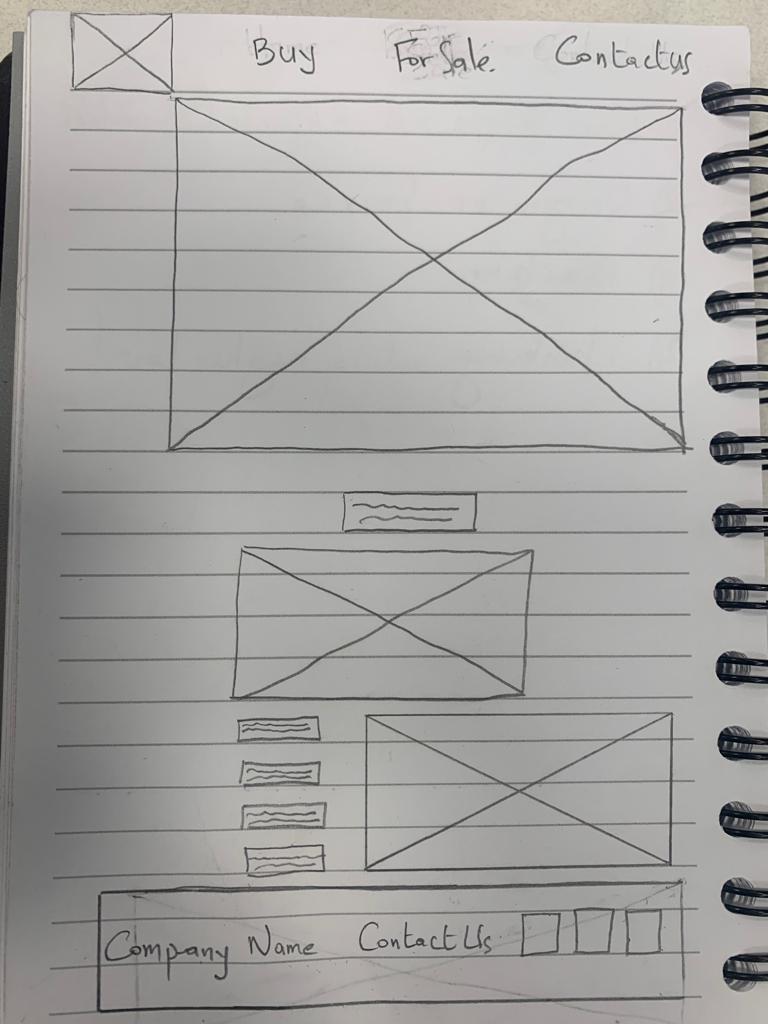 Buy For Sale. Contact us
Company Name Contact Us